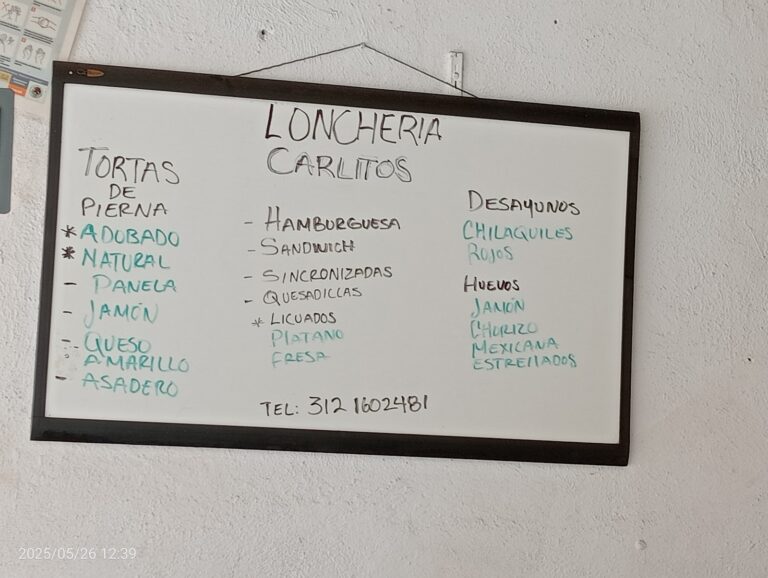 LONCHERIA
CARLITOS
TORTAS
DE
PIERNA
* ADOBADO
* NATURAL
- PANELA
- JAMÓN
- QUESO
AMARILLO
- ASADERO
- HAMBURGUESA
- SANDWICH
- SINCRONIZADAS
- QUESADILLAS
* LICUADOS
PLATANO
FRESA
DESAYUNOS
CHILAQUILES
ROJOS
HUEVOS
JAMÓN
CHORIZO
MEXICANA
ESTRELLADOS
TEL: 312 1602481
2025/05/26 12:39